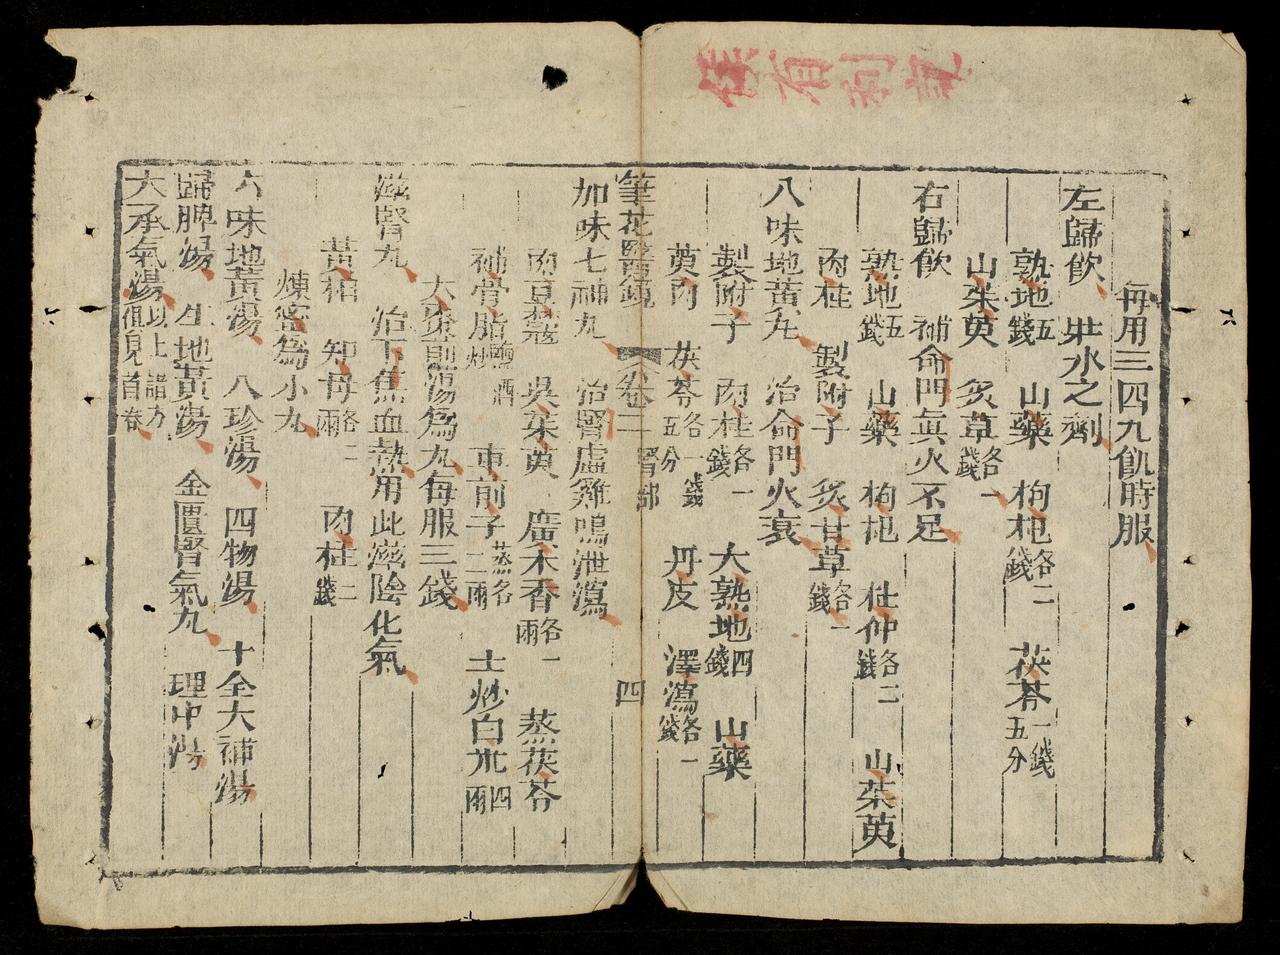 每用三四九飢時服
左歸飲　壯水之劑
熟地五錢　山藥　枸杞各二錢　茯苓一錢五分
山茱萸　炙草各一錢
右歸飲　補命門眞火不足
熟地五錢　山藥　枸杞　杜仲各二錢　山茱萸
肉桂　製附子　炙甘草各一錢
八味地黃丸　治命門火衰
製附子　肉桂各一錢　大熟地四錢　山藥
萸肉　茯苓各一錢五分　丹皮　澤瀉各一錢
筆花醫鏡　卷二　腎部　四
加味七神丸　治腎虛雞鳴泄瀉
肉豆蔻　吳茱萸　廣木香各一兩　蒸茯苓
補骨脂鹽酒炒　車前子蒸各二兩　土炒白朮四兩
大棗煎湯爲丸每服三錢
滋腎丸　治下焦血熱用此滋陰化氣
黃柏　知母各二兩　肉桂二錢
煉蜜爲小丸
六味地黃湯　八珍湯　四物湯　十全大補湯
歸脾湯　生地黃湯　金匱腎氣丸　理中湯
大承氣湯以上諸方俱見首卷